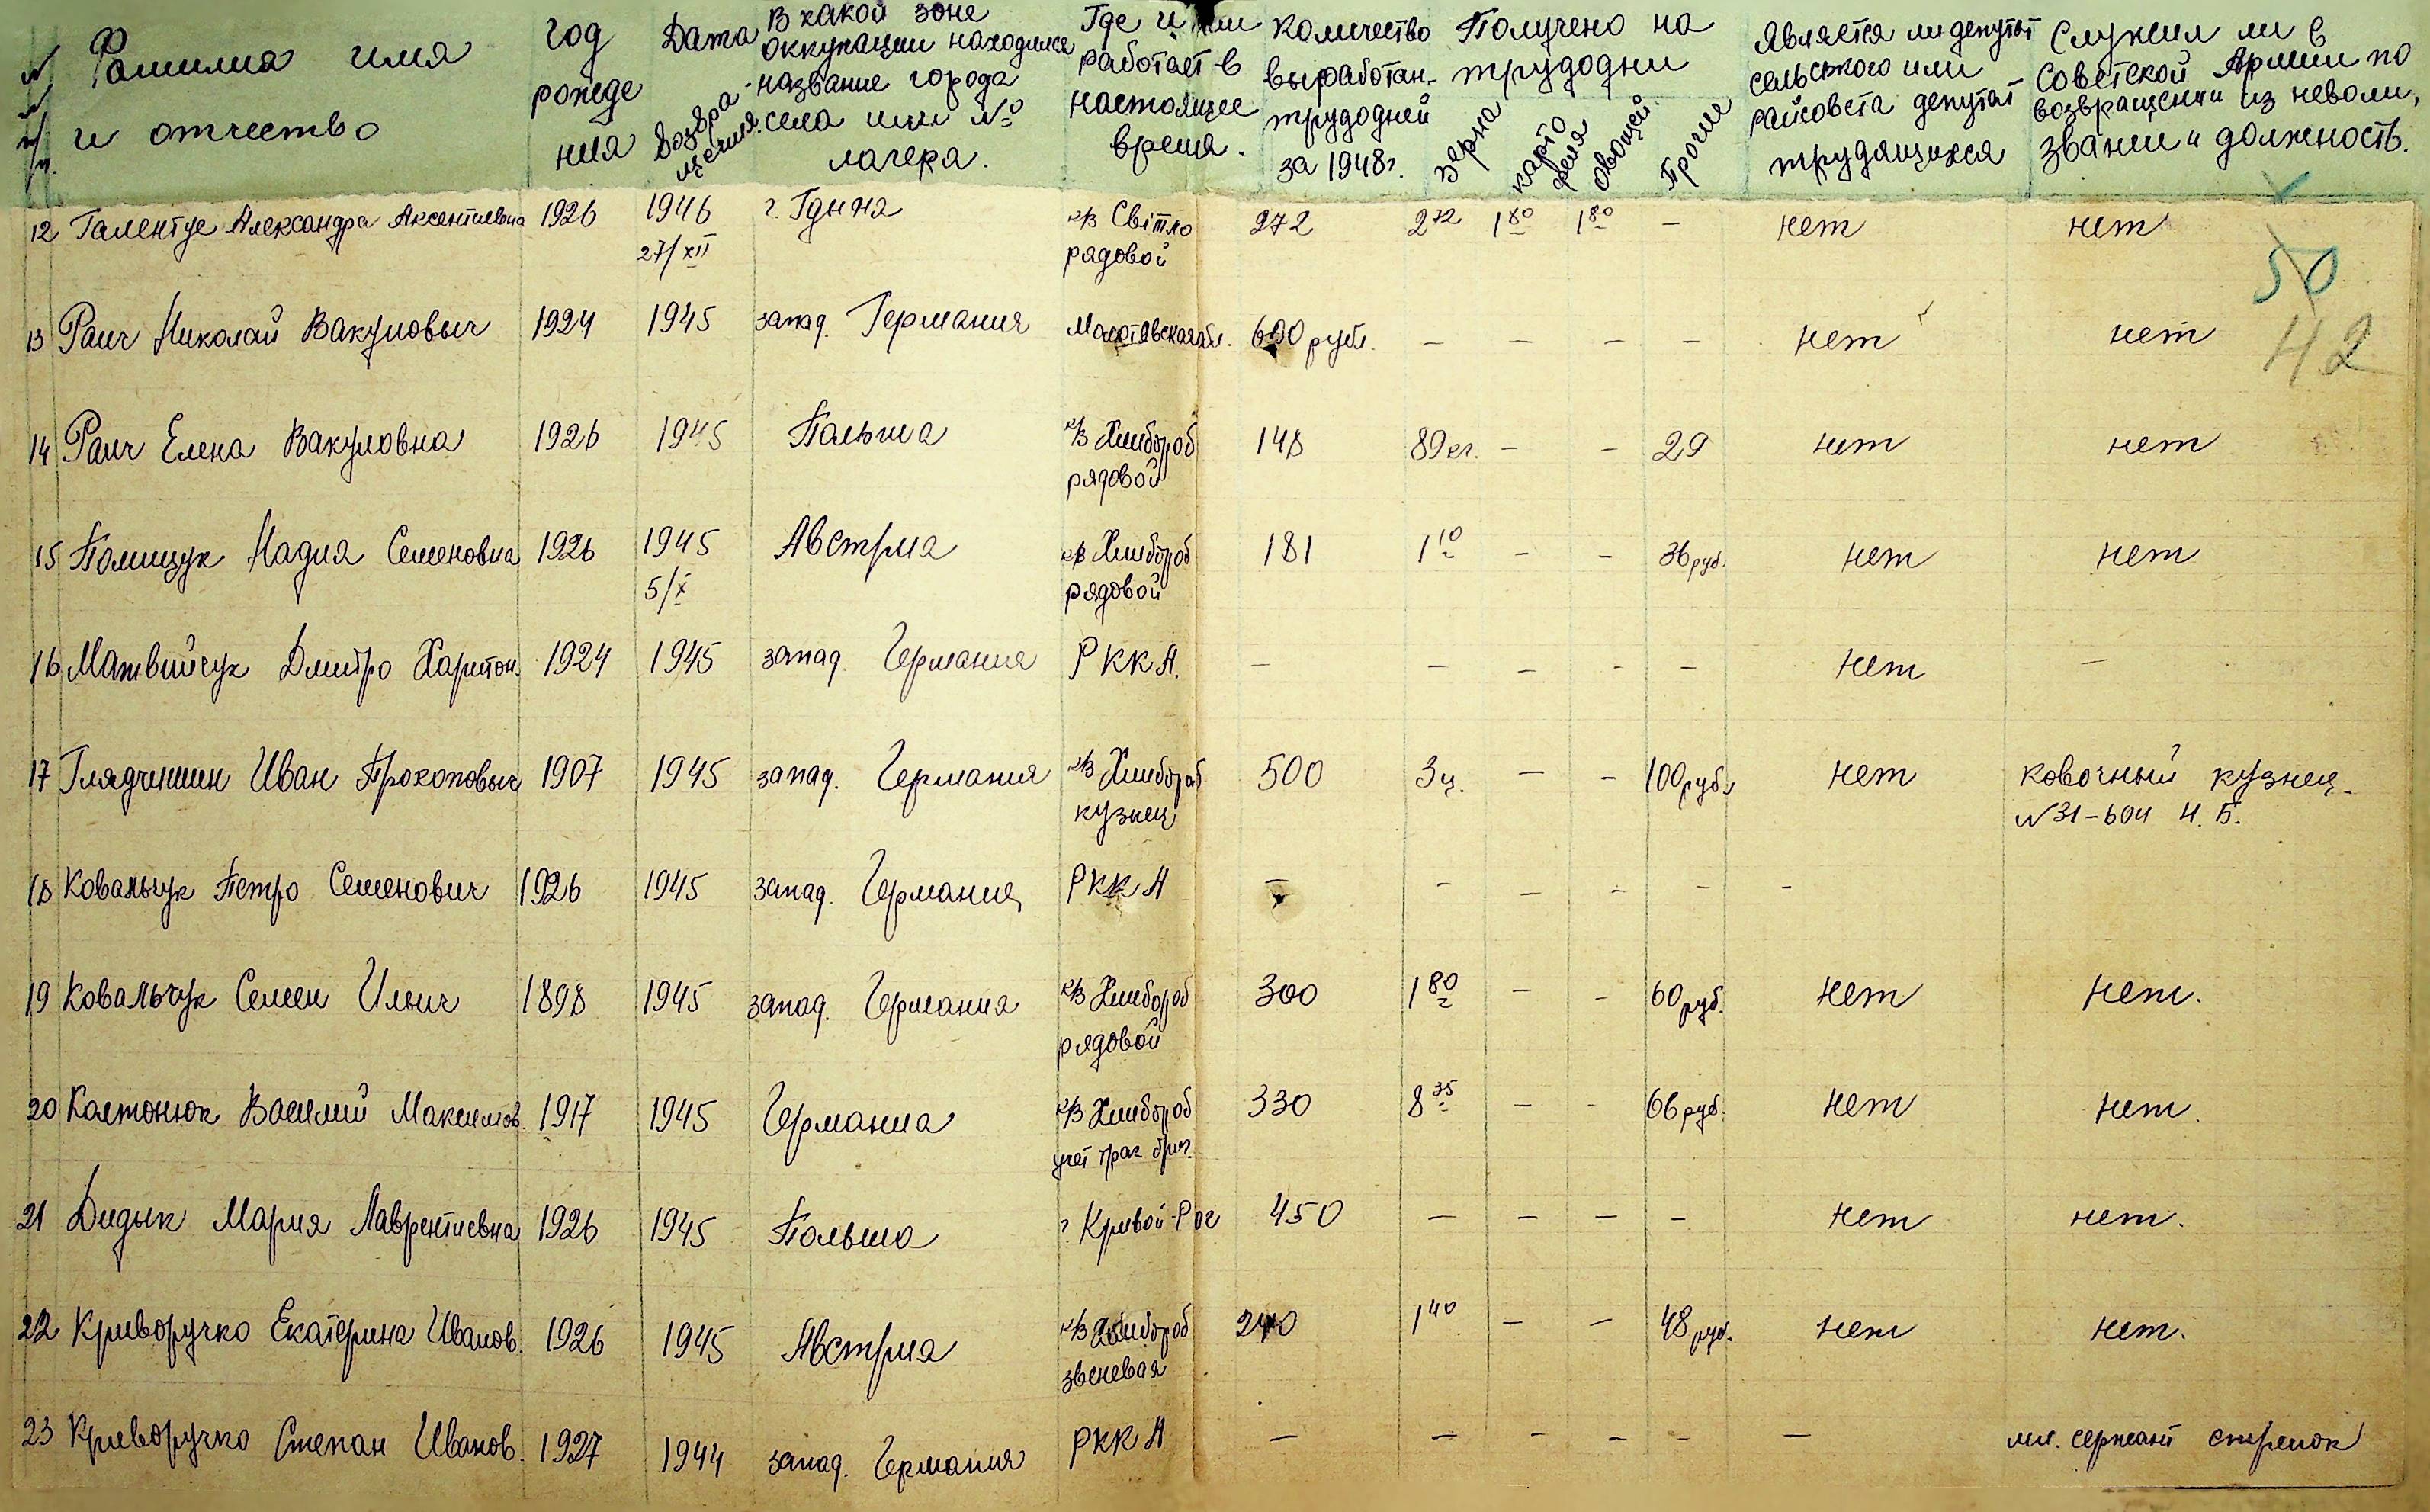 № п/п. Фамилия имя и отчество
год рождения
Дата возвращения.
В какой зоне оккупации находился название города села или № лагеря.
Где и кем работает в настоящее время.
Количество выработан. трудодней за 1948 г.
Получено на трудодни
зерна
картофеля
овощей
Прочие
Является ли депутат сельского или райсовета депутат трудящихся
Служил ли в Советской Армии по возвращении из неволи, звании и должность.
12 Талентус Александра Аксентиевна 1926 1946 г. Гдыня к/в Світло 272 2⁷² 1⁸⁰ 1⁸⁰ – нет нет
27/XII рядовой
50
13 Раич Николай Вакулович 1924 1945 запад. Германия 600 рубл. – – – – нет нет
42
14 Раич Елена Вакуловна 1926 1945 Польша к/в Хлибороб 148 89 кг. – – 29 нет нет
рядовой
15 Полищук Надия Семеновна 1926 1945 Австрия к/в Хлибороб 181 1¹⁰ – – 36 руб. нет нет
5/X рядовой
16 Матвийчук Дмитро Харитон. 1924 1945 запад. Германия РККА. – – – – – нет –
17 Глядчишин Иван Прокопович 1907 1945 запад. Германия к/в Хлибороб 500 3 ц. – – 100 рубл нет ковочный кузнец
кузнец №31-604 Н. Б.
18 Ковальчук Петро Семенович 1926 1945 запад. Германия РККА – – – – – –
19 Ковальчук Семен Ильич 1898 1945 запад. Германия к/в Хлибороб 300 1⁸⁰ – – 60 руб. нет нет.
рядовой
20 Колтонюк Василий Максимов. 1917 1945 Германиа к/в Хлибороб 330 8³⁵ – – 66 руб. нет нет.
учет трак бриг.
21 Дидык Мария Лаврентиевна 1926 1945 Польша г. Кривой-Рог 450 – – – – нет нет.
22 Криворучко Екатерина Иванов. 1926 1945 Австрия к/в Хлибороб 240 1⁴⁰ – – 48 руб. нет нет.
звеневая
23 Криворучко Степан Иванов. 1927 1944 запад. Германия РККА – – – – – – мл. сержант стрелок